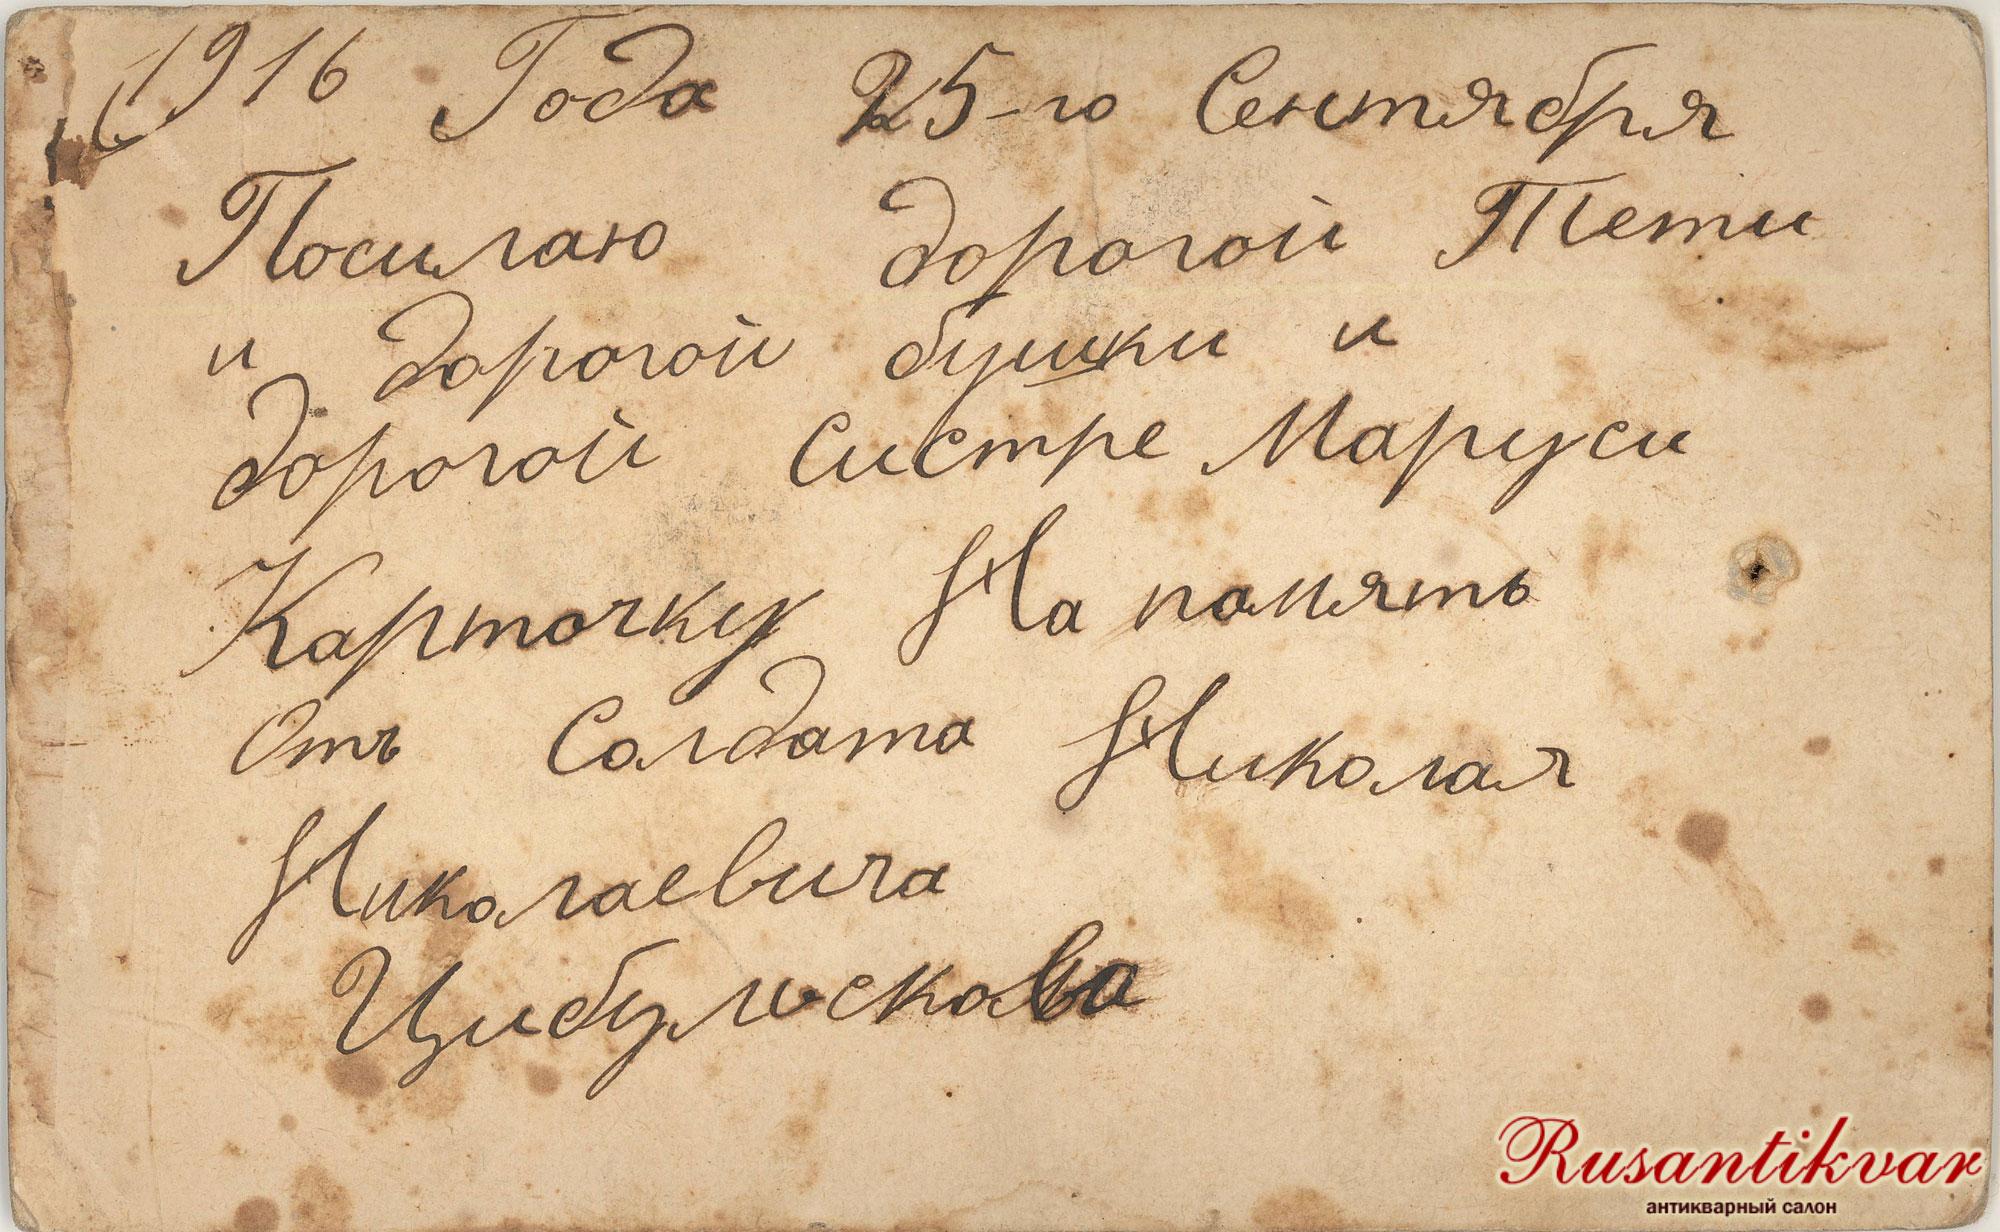 1916 Года 25-го Сентября
Посилаю дорогой Тети
и дорогой бушки и
дорогой систре Маруси
Карточку На память
Отъ Солдата Николая
Николаевича
Цибульскова
Rusantikvar
антикварный салон